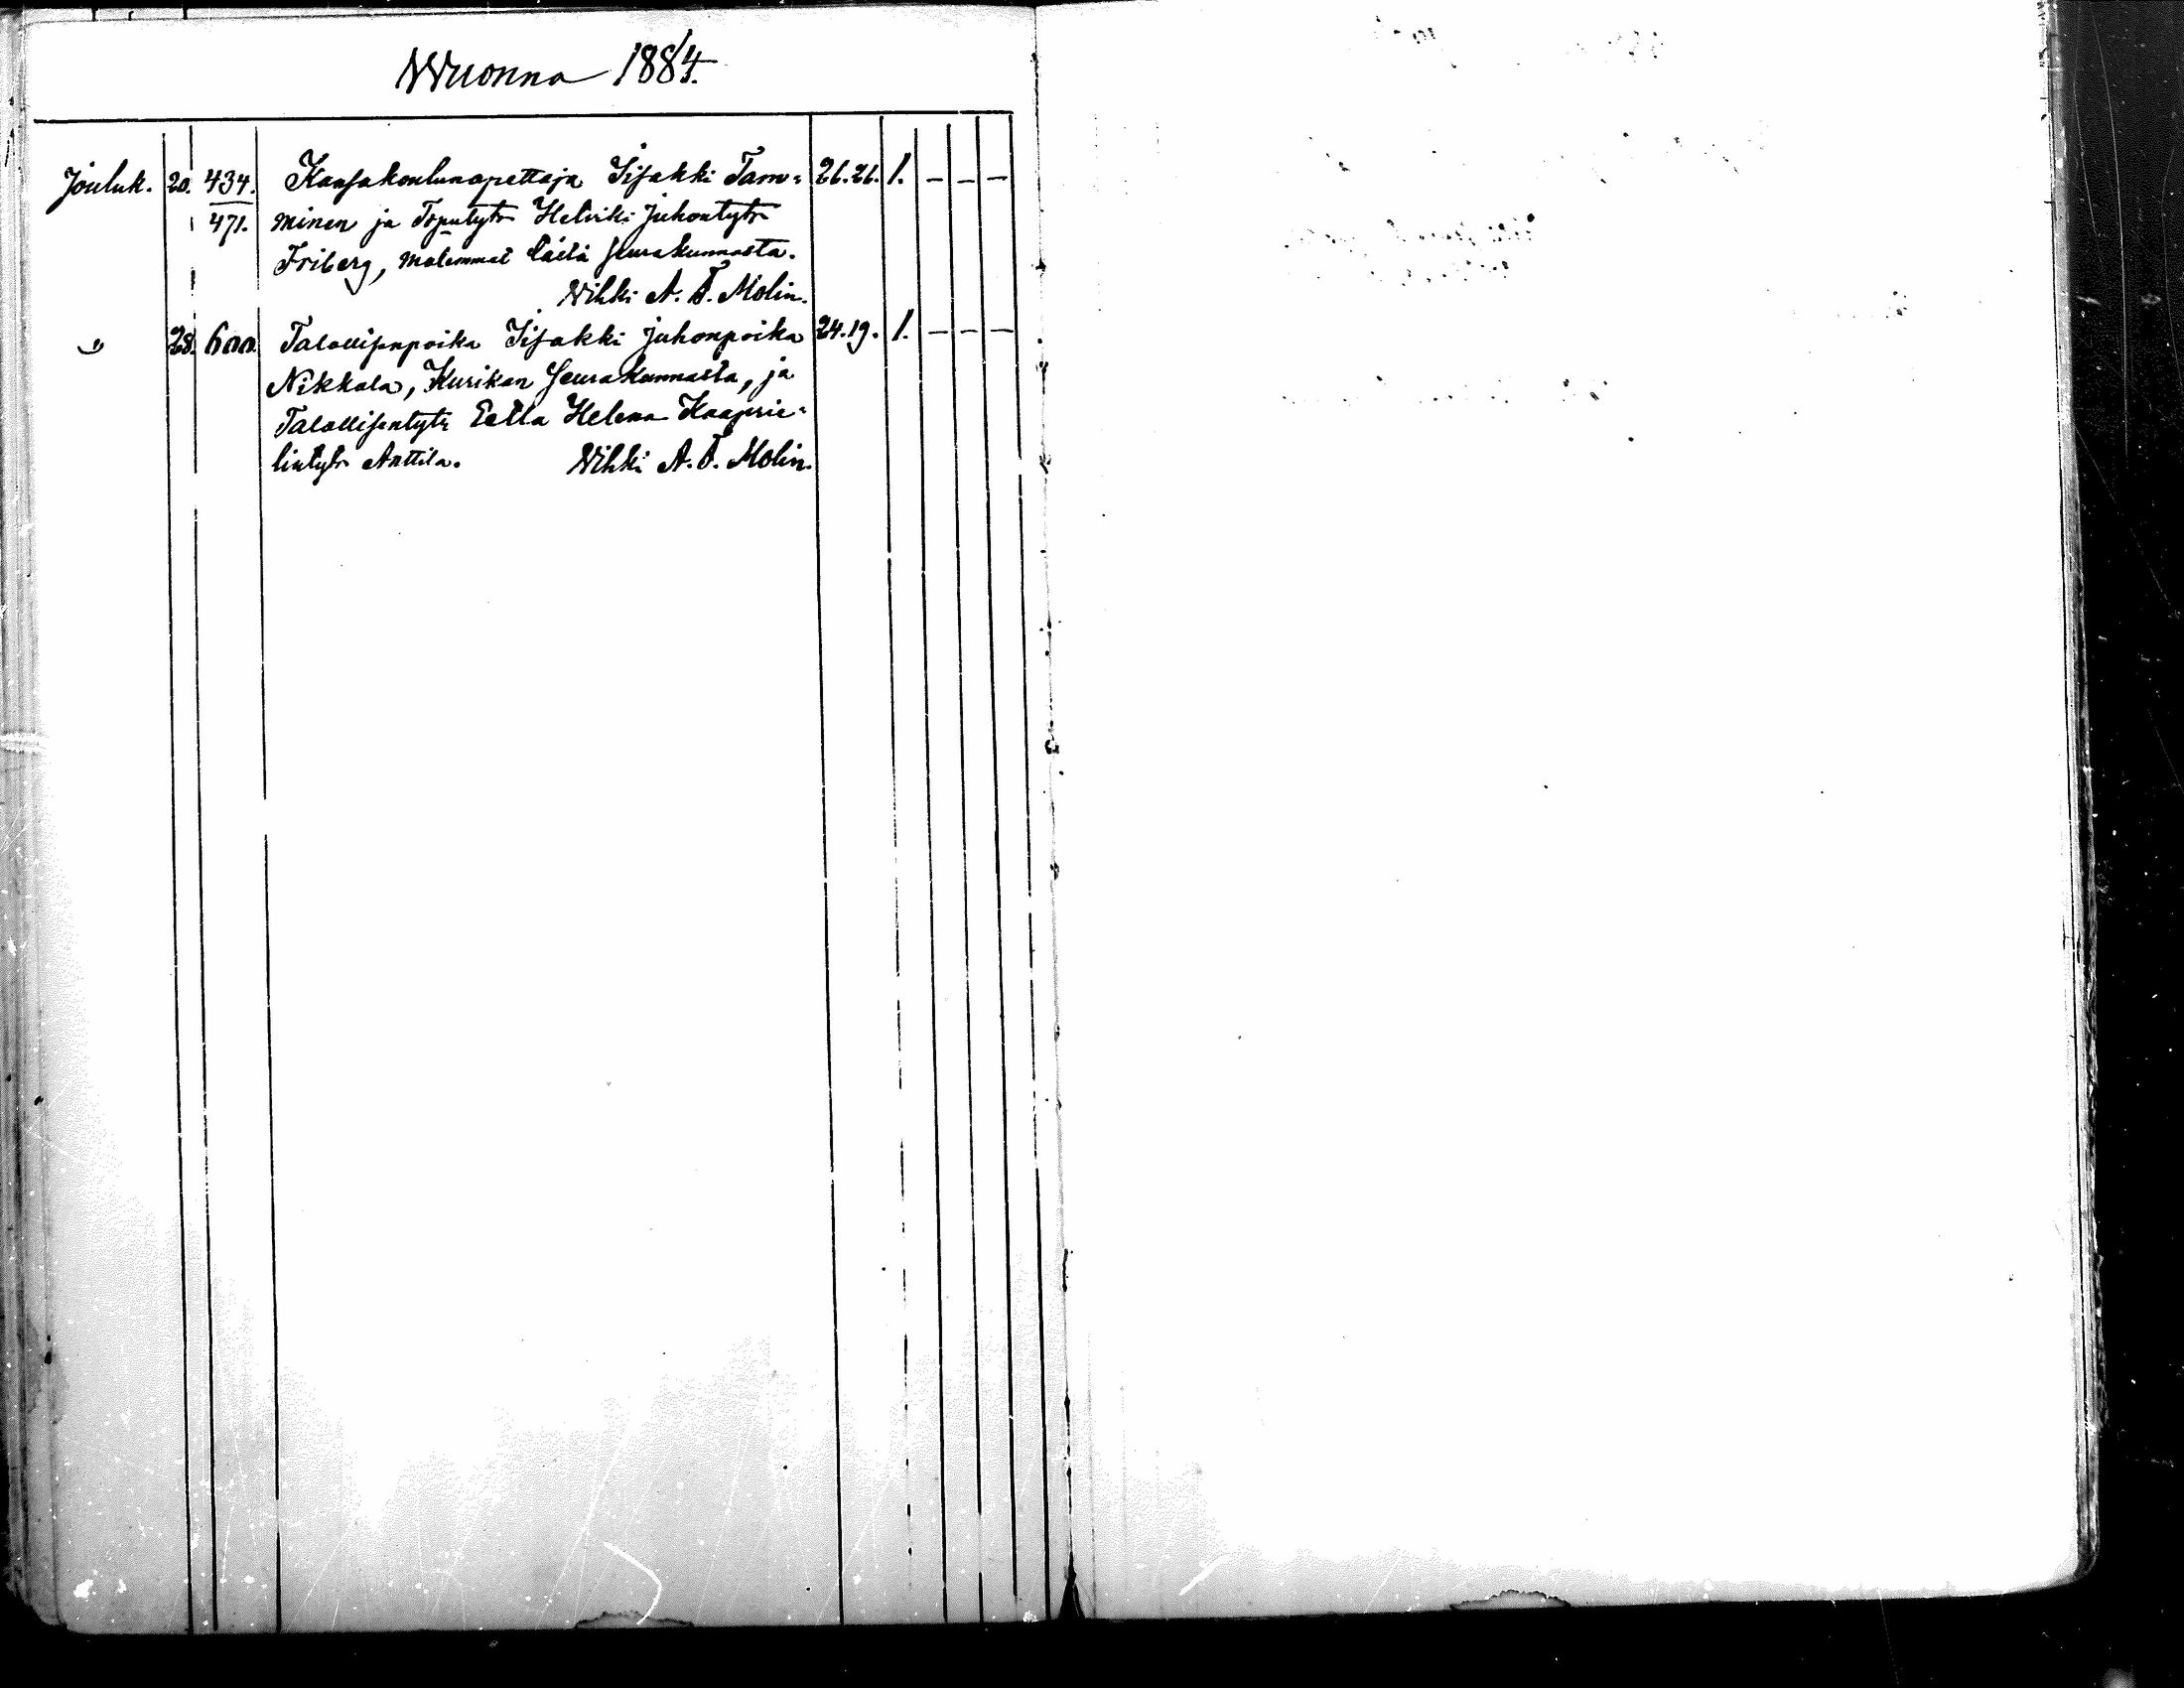 Wuonna 1884.
Jouluk. 20. 434. Kansakoulunopettaja Iisakki Tam= 26. 26. 1. — — —
471. minen ja Topulytr Helviki Juhontytr
Friberg, molemmat tästä seurakunnasta.
Wihki A. F. Molin.
" 28. 600. Talollisenpoika Iisakki Juhonpoika 24. 19. 1. — — —
Nikkola, Kurikan seurakunnasta, ja
Talollisentytr Eetla Helena Kaaprie=
lintytr Anttila. Wihki A. F. Molin.